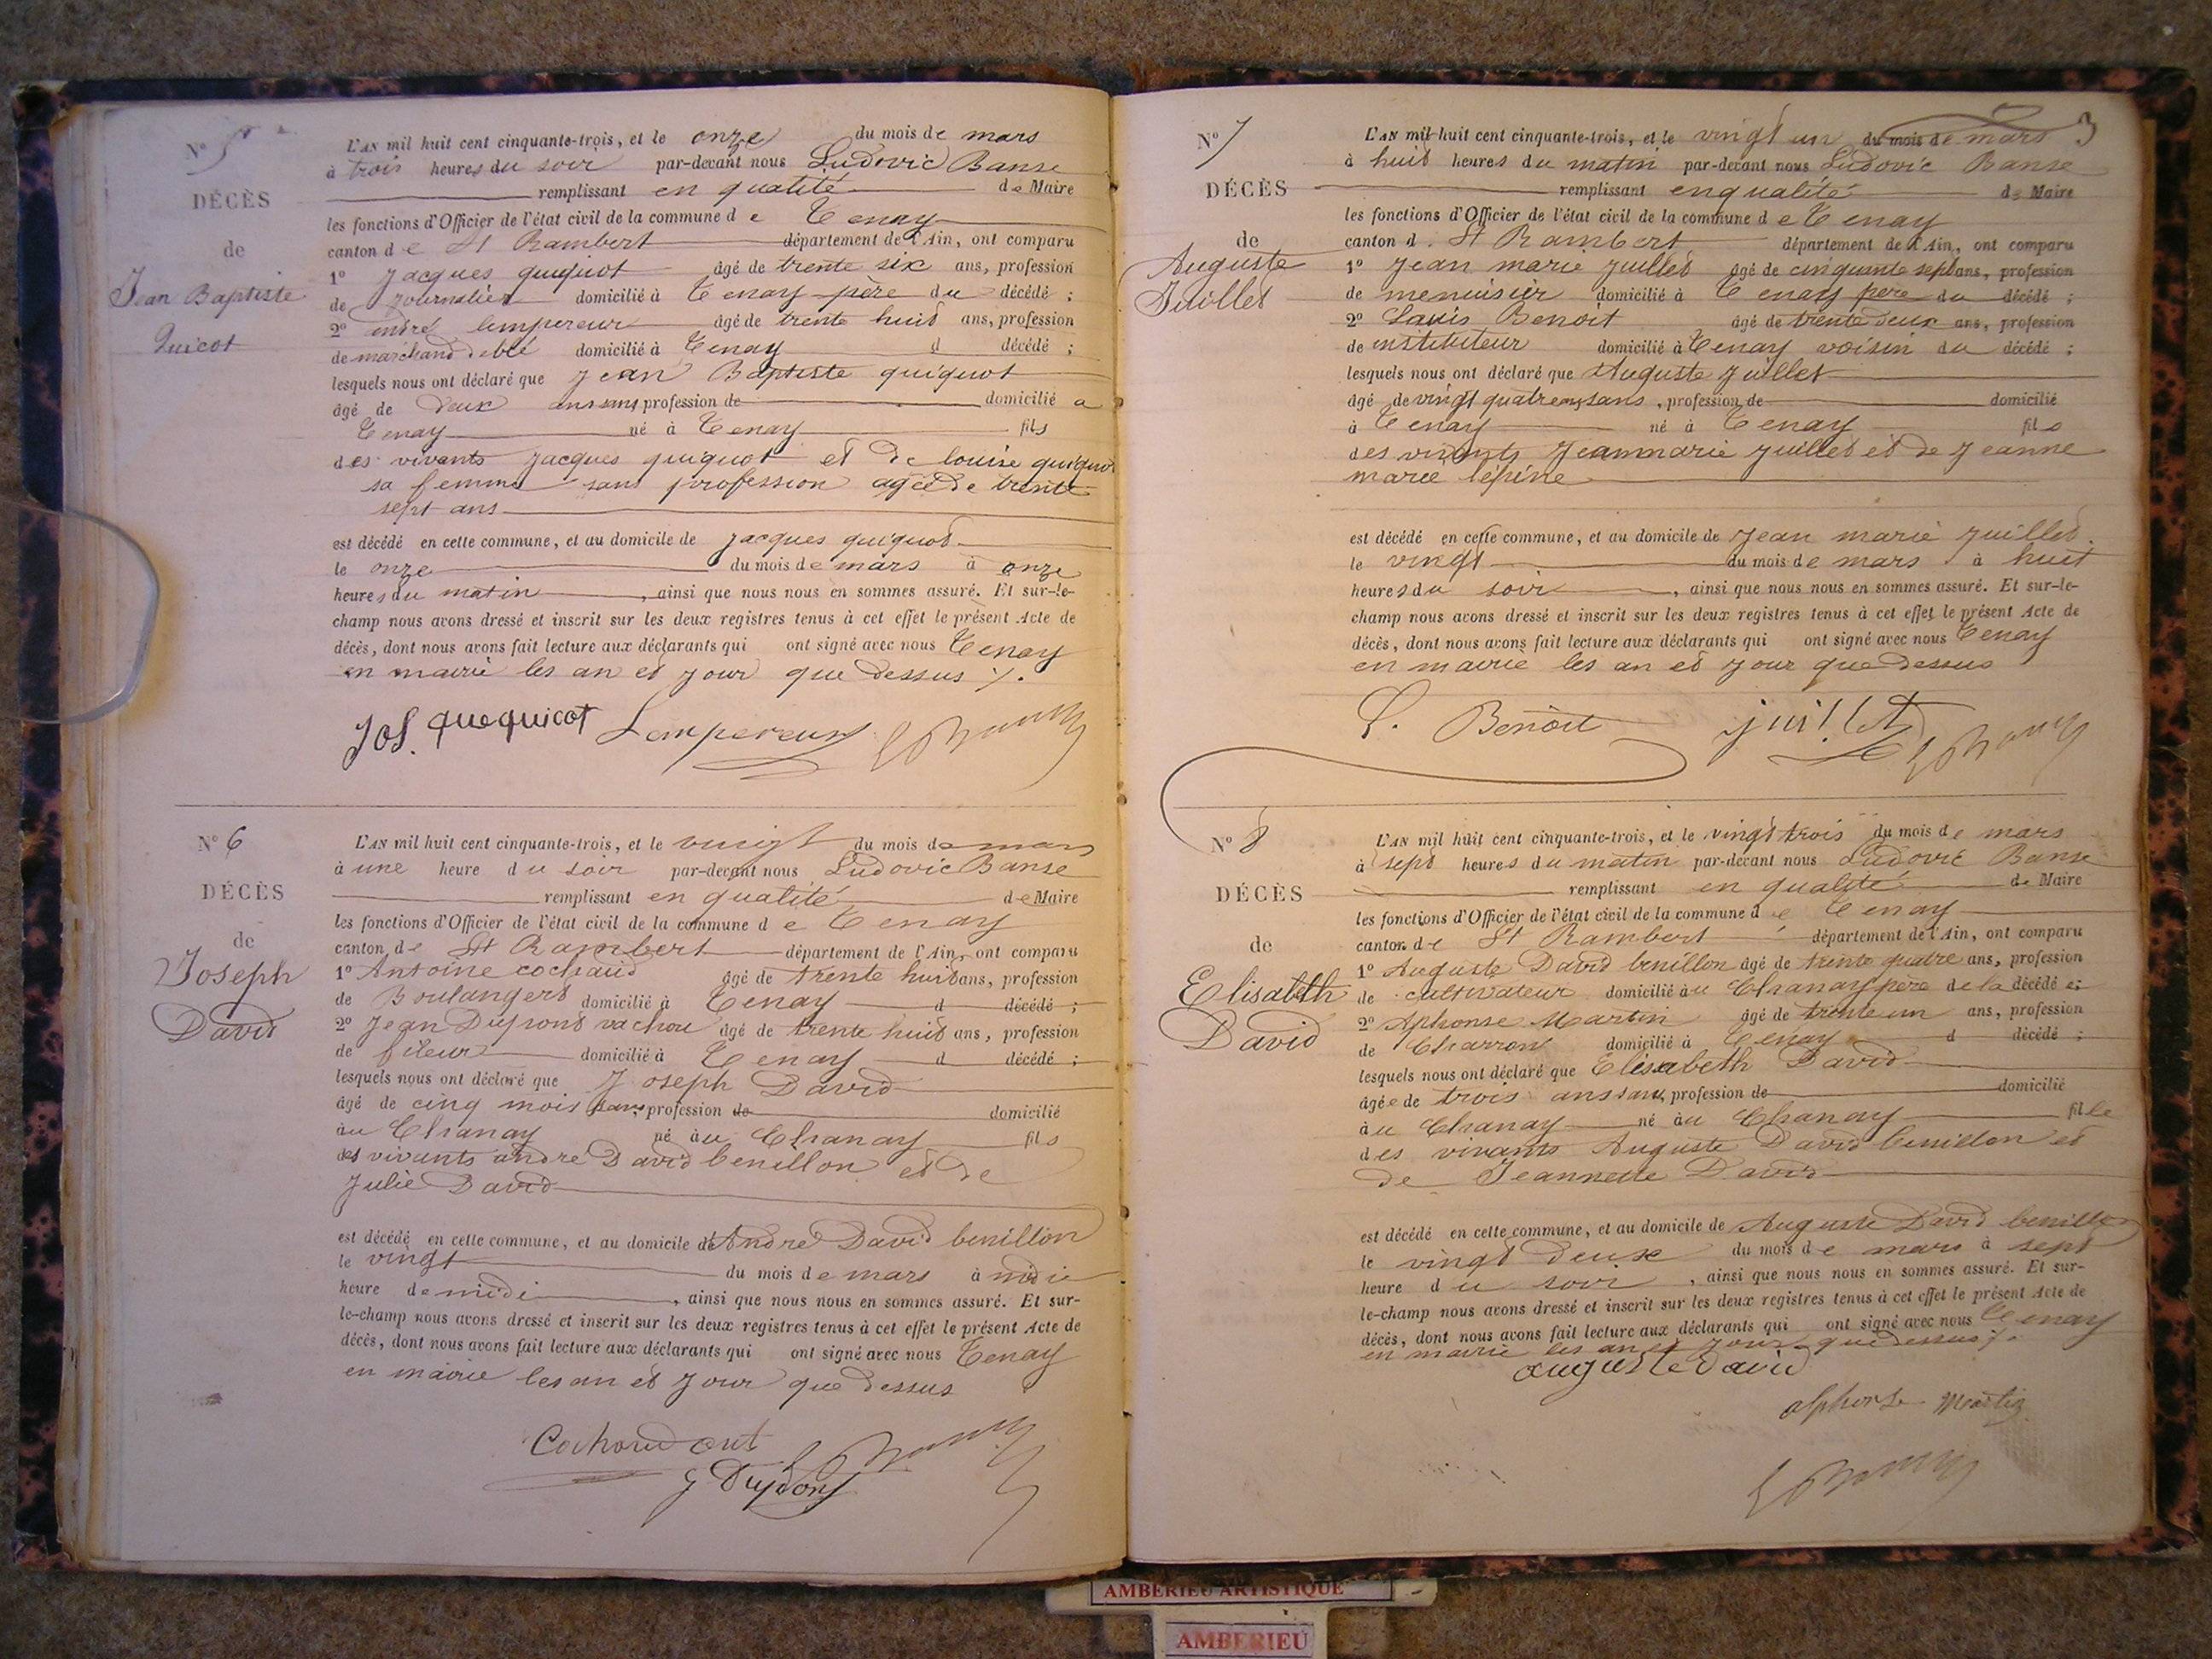 N° 5
DÉCÈS
de
Jean Baptiste
Quicot
L'AN mil huit cent cinquante-trois, et le onze du mois de mars
à trois heures du soir par-devant nous Ludovic Banse
remplissant en qualité de Maire
les fonctions d'Officier de l'état civil de la commune de Tenay
canton de St Rambert département de l'Ain, ont comparu
1° Jacques quiquot âgé de trente six ans, profession
de journalier domicilié à Tenay père du décédé ;
2° andré lempereur âgé de trente huit ans, profession
de marchand deblé domicilié à Tenay d décédé ;
lesquels nous ont déclaré que Jean Baptiste quiquot
âgé de deux ans sans profession de domicilié a
Tenay né à Tenay fils
des vivants Jacques quiquot et de louise quiquot
sa femme sans profession agée de trente
sept ans
est décédé en cette commune, et au domicile de jacques quiquot
le onze du mois de mars à onze
heures du matin, ainsi que nous nous en sommes assuré. Et sur-le-
champ nous avons dressé et inscrit sur les deux registres tenus à cet effet le présent Acte de
décès, dont nous avons fait lecture aux déclarants qui ont signé avec nous Tenay
en mairie les an et jour que dessus %.
Jos. quequicot Lempereur
N° 6
DÉCÈS
de
Joseph
David
L'AN mil huit cent cinquante-trois, et le vingt du mois de mars
à une heure du soir par-devant nous Ludovic Banse
remplissant en qualité de Maire
les fonctions d'Officier de l'état civil de la commune de Tenay
canton de St Rambert département de l'Ain, ont comparu
1° Antoine cochaud âgé de trente huit ans, profession
de Boulangers domicilié à Tenay d décédé ;
2° Jean Dupont vachou âgé de trente huit ans, profession
de fileur domicilié à Tenay d décédé ;
lesquels nous ont déclaré que Joseph David
âgé de cinq mois sans profession de domicilié
àu Chanay né àu Chanay fils
des vivants andré David benillon et de
Julie David
est décédé en cette commune, et au domicile de André David benillon
le vingt du mois de mars à midi
heure de midi, ainsi que nous nous en sommes assuré. Et sur-
le-champ nous avons dressé et inscrit sur les deux registres tenus à cet effet le présent Acte de
décès, dont nous avons fait lecture aux déclarants qui ont signé avec nous Tenay
en mairie les an et jour que dessus
3
N° 7
DÉCÈS
de
Auguste
Juillet
L'AN mil huit cent cinquante-trois, et le vingt un du mois de mars
à huit heures du matin par-devant nous Ludovic Banse
remplissant en qualité de Maire
les fonctions d'Officier de l'état civil de la commune de Tenay
canton d. St Rambert département de l'Ain, ont comparu
1° Jean marie juillet âgé de cinquante sept ans, profession
de menuisier domicilié à Tenay père du décédé ;
2° Louis Benoit âgé de trente deux ans, profession
de instituteur domicilié à Tenay voisin du décédé ;
lesquels nous ont déclaré que Auguste juillet
âgé de vingt quatre ans sans, profession de domicilié
à Tenay né à Tenay fils
des vivants Jeanmarie juillet et de Jeanne
marie lépine
est décédé en cette commune, et au domicile de Jean marie juillet
le vingt du mois de mars à huit
heures du soir, ainsi que nous nous en sommes assuré. Et sur-le-
champ nous avons dressé et inscrit sur les deux registres tenus à cet effet le présent Acte de
décès, dont nous avons fait lecture aux déclarants qui ont signé avec nous Tenay
en mairie les an et jour que dessus
L. Benoit juillet
N° 8
DÉCÈS
de
Elisabeth
David
L'AN mil huit cent cinquante-trois, et le vingt trois du mois de mars
à sept heures du matin par-devant nous Ludovic Banse
remplissant en qualité de Maire
les fonctions d'Officier de l'état civil de la commune de Tenay
canton de St Rambert département de l'Ain, ont comparu
1° Auguste David benillon âgé de trente quatre ans, profession
de cultivateur domicilié àu Chanay père de la décédée ;
2° Alphonse Martin âgé de trente un ans, profession
de Charron domicilié à Tenay d décédé ;
lesquels nous ont déclaré que Elisabeth David
âgée de trois ans sans profession de domicilié
àu Chanay né àu Chanay fille
des vivants Auguste David benillon et
de Jeannette David
est décédé en cette commune, et au domicile de Auguste David benillon
le vingt deux du mois de mars à sept
heure du soir, ainsi que nous nous en sommes assuré. Et sur-
le-champ nous avons dressé et inscrit sur les deux registres tenus à cet effet le présent Acte de
décès, dont nous avons fait lecture aux déclarants qui ont signé avec nous Tenay
en mairie les an et jour que dessus %.
auguste david
alphonse Martin
AMBERIEU ARTISTIQUE
AMBERIEU